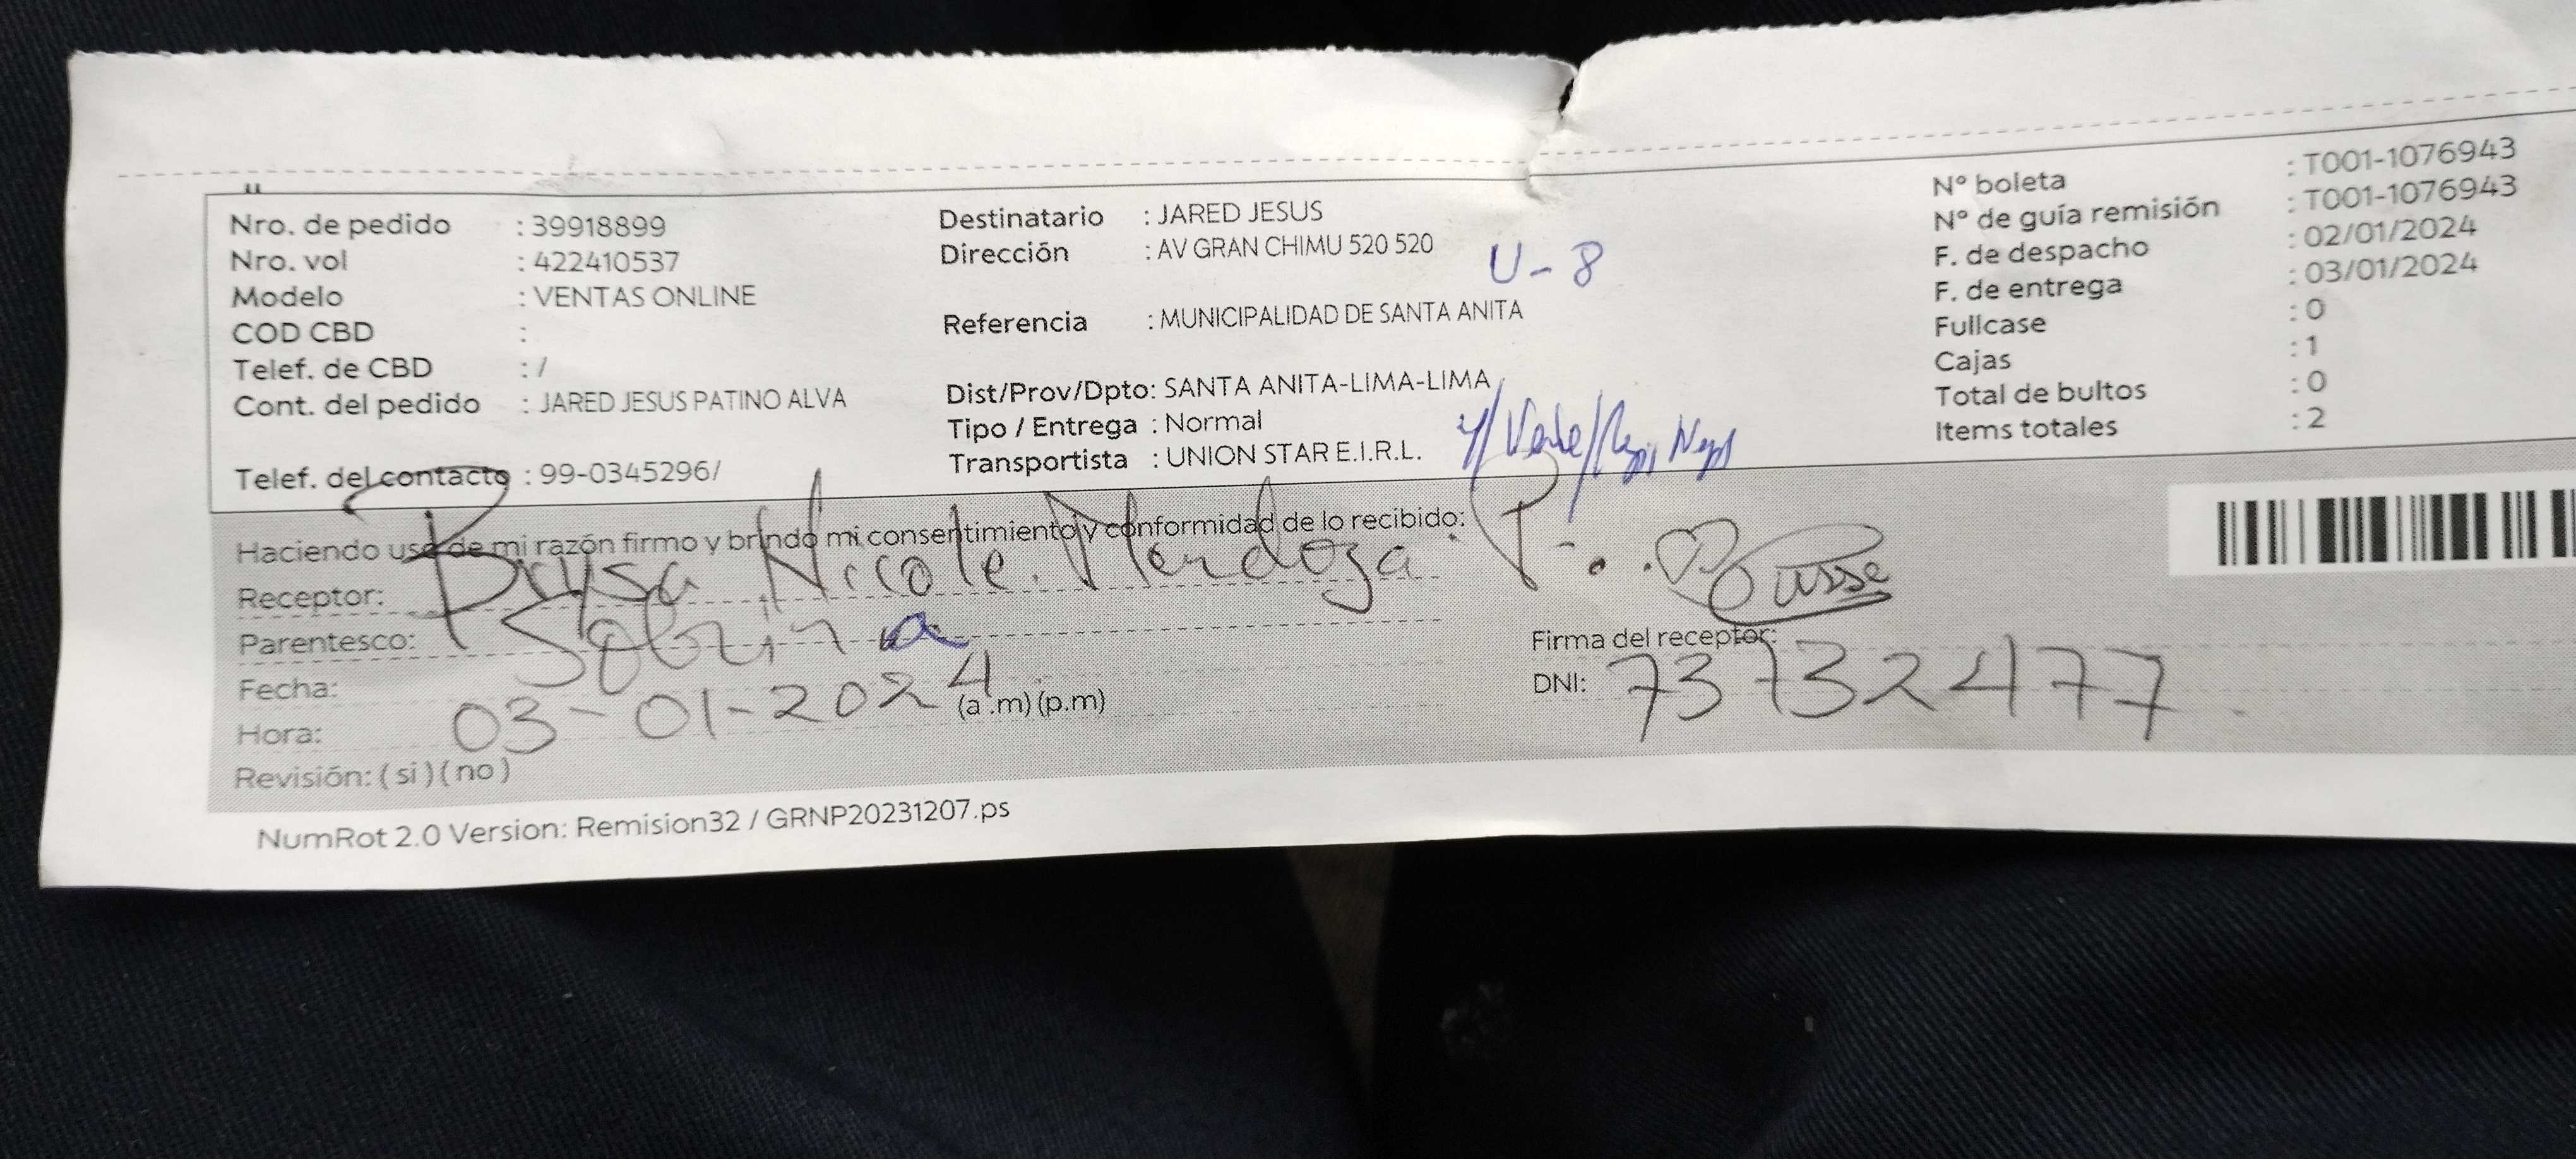 Nro. de pedido : 39918899
Nro. vol : 422410537
Modelo : VENTAS ONLINE
COD CBD :
Telef. de CBD : /
Cont. del pedido : JARED JESUS PATINO ALVA
Telef. del contacto : 99-0345296/
Destinatario : JARED JESUS
Dirección : AV GRAN CHIMU 520 520
U-8
Referencia : MUNICIPALIDAD DE SANTA ANITA
Dist/Prov/Dpto: SANTA ANITA-LIMA-LIMA
Tipo / Entrega : Normal
Transportista : UNION STAR E.I.R.L.
Nº boleta : T001-1076943
Nº de guía remisión : T001-1076943
F. de despacho : 02/01/2024
F. de entrega : 03/01/2024
Fullcase : 0
Cajas : 1
Total de bultos : 0
Items totales : 2
Haciendo uso de mi razón firmo y brindo mi consentimiento y conformidad de lo recibido:
Receptor: Nicole Mendoza P.
Parentesco: Sobrina
Fecha: 03-01-2024
Hora: (a .m) (p.m)
Revisión: (si) (no)
Firma del receptor:
DNI: 73732477
NumRot 2.0 Version: Remision32 / GRNP20231207.ps